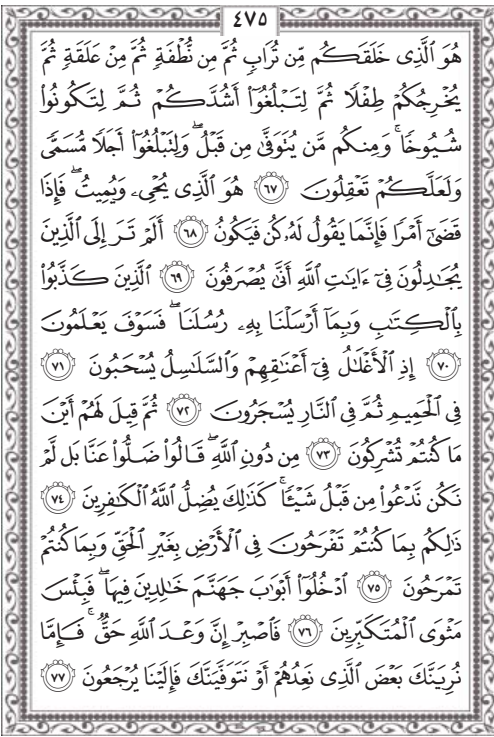 ٤٧٥
هُوَ ٱلَّذِى خَلَقَكُم مِّن تُرَابٍ ثُمَّ مِن نُّطْفَةٍ ثُمَّ مِنْ عَلَقَةٍ ثُمَّ
يُخْرِجُكُمْ طِفْلًا ثُمَّ لِتَبْلُغُوٓا۟ أَشُدَّكُمْ ثُمَّ لِتَكُونُوا۟
شُيُوخًا ۚ وَمِنكُم مَّن يُتَوَفَّىٰ مِن قَبْلُ ۖ وَلِتَبْلُغُوٓا۟ أَجَلًا مُّسَمًّى
وَلَعَلَّكُمْ تَعْقِلُونَ ٦٧ هُوَ ٱلَّذِى يُحْىِۦ وَيُمِيتُ ۖ فَإِذَا
قَضَىٰٓ أَمْرًا فَإِنَّمَا يَقُولُ لَهُۥ كُن فَيَكُونُ ٦٨ أَلَمْ تَرَ إِلَى ٱلَّذِينَ
يُجَٰدِلُونَ فِىٓ ءَايَٰتِ ٱللَّهِ أَنَّىٰ يُصْرَفُونَ ٦٩ ٱلَّذِينَ كَذَّبُوا۟
بِٱلْكِتَٰبِ وَبِمَآ أَرْسَلْنَا بِهِۦ رُسُلَنَا ۖ فَسَوْفَ يَعْلَمُونَ
٧٠ إِذِ ٱلْأَغْلَٰلُ فِىٓ أَعْنَٰقِهِمْ وَٱلسَّلَٰسِلُ يُسْحَبُونَ ٧١
فِى ٱلْحَمِيمِ ثُمَّ فِى ٱلنَّارِ يُسْجَرُونَ ٧٢ ثُمَّ قِيلَ لَهُمْ أَيْنَ
مَا كُنتُمْ تُشْرِكُونَ ٧٣ مِن دُونِ ٱللَّهِ ۖ قَالُوا۟ ضَلُّوا۟ عَنَّا بَل لَّمْ
نَكُن نَّدْعُوا۟ مِن قَبْلُ شَيْـًٔا ۚ كَذَٰلِكَ يُضِلُّ ٱللَّهُ ٱلْكَٰفِرِينَ ٧٤
ذَٰلِكُم بِمَا كُنتُمْ تَفْرَحُونَ فِى ٱلْأَرْضِ بِغَيْرِ ٱلْحَقِّ وَبِمَا كُنتُمْ
تَمْرَحُونَ ٧٥ ٱدْخُلُوٓا۟ أَبْوَٰبَ جَهَنَّمَ خَٰلِدِينَ فِيهَا ۖ فَبِئْسَ
مَثْوَى ٱلْمُتَكَبِّرِينَ ٧٦ فَٱصْبِرْ إِنَّ وَعْدَ ٱللَّهِ حَقٌّ ۚ فَإِمَّا
نُرِيَنَّكَ بَعْضَ ٱلَّذِى نَعِدُهُمْ أَوْ نَتَوَفَّيَنَّكَ فَإِلَيْنَا يُرْجَعُونَ ٧٧